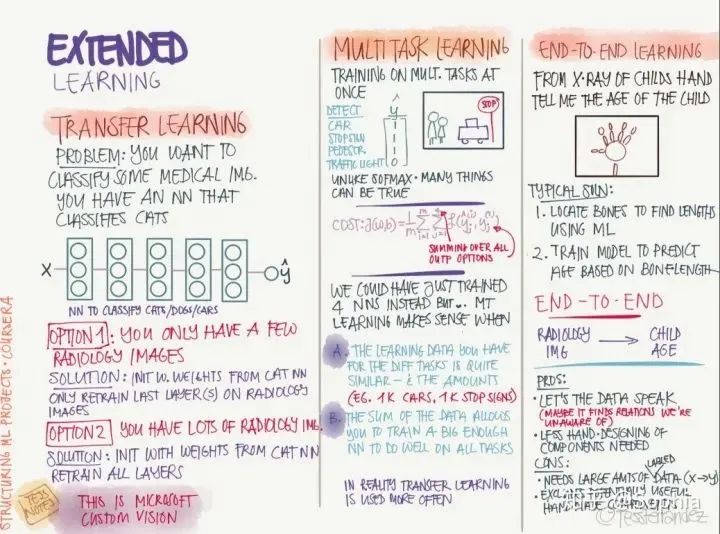 EXTENDED
LEARNING
TRANSFER LEARNING
PROBLEM: YOU WANT TO
CLASSIFY SOME MEDICAL IMG.
YOU HAVE AN NN THAT
CLASSIFIES CATS
X
ŷ
NN TO CLASSIFY CATS/DOGS/CARS
OPTION 1: YOU ONLY HAVE A FEW
RADIOLOGY IMAGES
SOLUTION: INIT W. WEIGHTS FROM CAT NN
ONLY RETRAIN LAST LAYER(S) ON RADIOLOGY
IMAGES
OPTION 2 YOU HAVE LOTS OF RADIOLOGY IMG.
SOLUTION: INIT WITH WEIGHTS FROM CAT NN
RETRAIN ALL LAYERS
TESS
NOTE
THIS IS MICROSOFT
CUSTOM VISION
STRUCTURING ML PROJECTS · COURSERA
MULTI TASK LEARNING
TRAINING ON MULT. TASKS AT
ONCE
DETECT ŷ
CAR 1
STOPSIGN 1
PEDESTR. 1
TRAFFIC LIGHT 0
STOP
UNLIKE SOFMAX · MANY THINGS
CAN BE TRUE
COST: J(w,b) =
SUMMING OVER ALL
OUTP OPTIONS
WE COULD HAVE JUST TRAINED
4 NNS INSTEAD BUT... MT
LEARNING MAKES SENSE WHEN
A. THE LEARNING DATA YOU HAVE
FOR THE DIFF TASKS IS QUITE
SIMILAR - & THE AMOUNTS
(EG. 1K CARS, 1K STOP SIGNS)
B. THE SUM OF THE DATA ALLOWS
YOU TO TRAIN A BIG ENOUGH
NN TO DO WELL ON ALL TASKS
IN REALITY TRANSFER LEARNING
IS USED MORE OFTEN
END-TO-END LEARNING
FROM X-RAY OF CHILDS HAND
TELL ME THE AGE OF THE CHILD
TYPICAL SOLN:
1. LOCATE BONES TO FIND LENGTHS
USING ML
2. TRAIN MODEL TO PREDICT
AGE BASED ON BONELENGTH
END-TO-END
RADIOLOGY → CHILD
IMG AGE
PROS:
· LET'S THE DATA SPEAK
(MAYBE IT FINDS RELATIONS WE'RE
UNAWARE OF)
· LESS HAND-DESIGNING OF
COMPONENTS NEEDED
CONS:
LABLED
· NEEDS LARGE AMTS OF DATA (X→Y)
· EXCLUDES POTENTIALLY USEFUL
HAND MADE COMPONENTS
@TessFerrandez